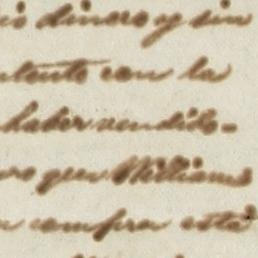 dinero y sin
con la
haber vendido-
que Williams
compra está